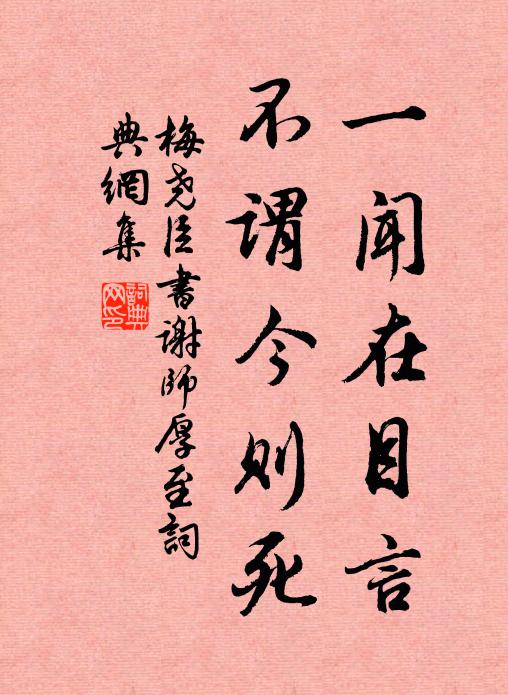 一闻在目言
不谓今则死
梅尧臣书谢师厚至词
典網集
詞典網印